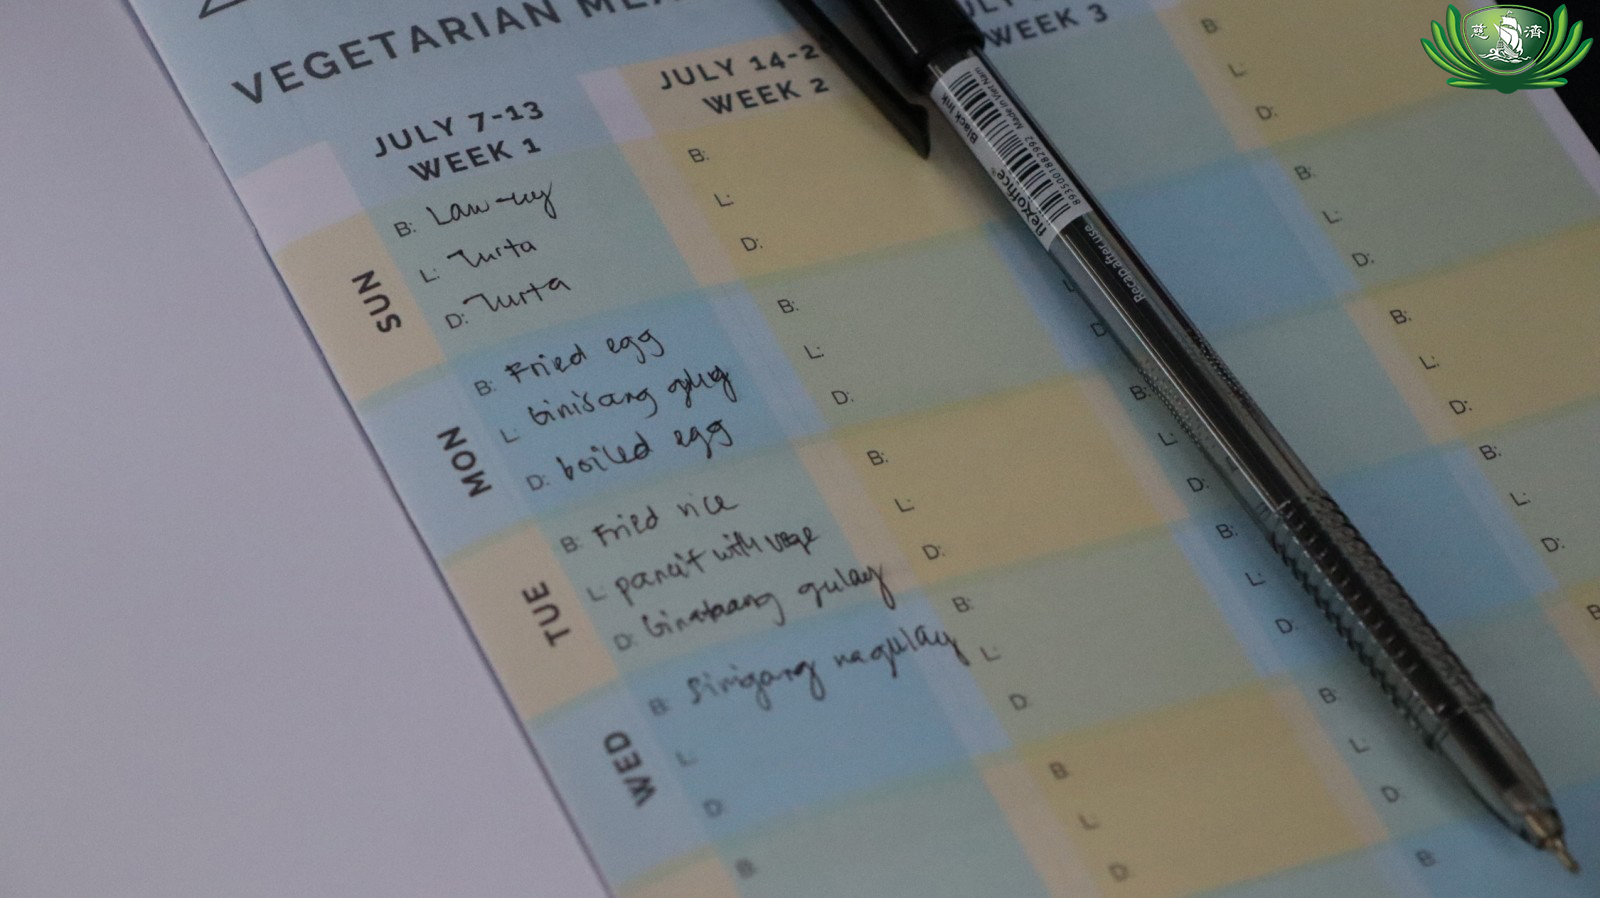 VEGETARIAN
JULY 7-13
WEEK 1
JULY 14-2
WEEK 2
WEEK 3
SUN
B: Law-uy
L: Turta
D: Turta
MON
B: Fried egg
L: Ginisang gulay
D: boiled egg
TUE
B: Fried rice
L: pancit with vege
D: Ginataang gulay
WED
B: Sinigang na gulay
L:
D:
B:
B:
L:
D:
B:
L:
D:
B:
L:
D:
B:
L:
D:
B:
L:
D:
L
D
B:
L:
D:
B:
L:
D:
B:
L:
D:
B:
B:
L:
D:
B:
L:
D:
B:
L:
D:
B:
L:
D:
B
Black Ink
Made in Viet Nam
8935001882992
flexoffice
Recap after use
慈 濟